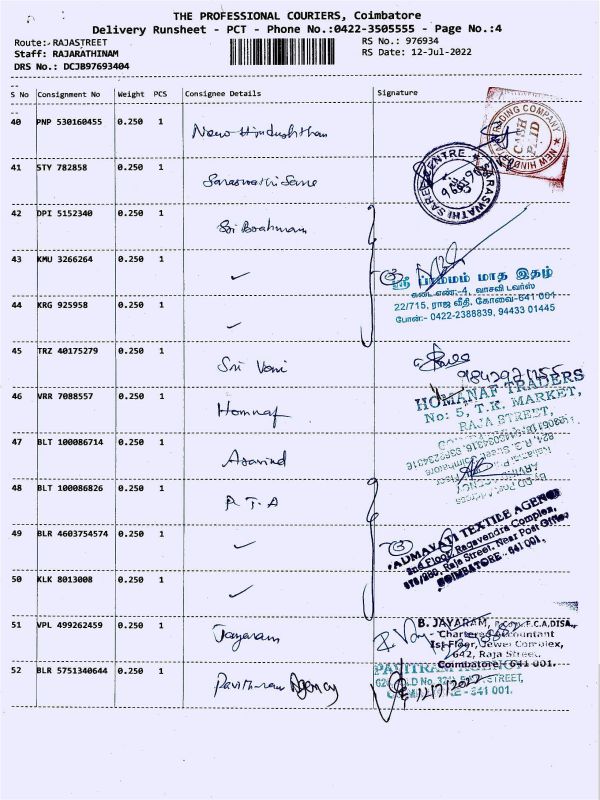 THE PROFESSIONAL COURIERS, Coimbatore
Delivery Runsheet - PCT - Phone No.:0422-3505555 - Page No.:4
Route: RAJASTREET
RS No.: 976934
Staff: RAJARATHINAM
RS Date: 12-Jul-2022
DRS No.: DCJB97693404
S No Consignment No Weight PCS Consignee Details Signature
40 PNP 530160455 0.250 1 New Hindushthan
41 STY 782858 0.250 1 Saraswathi Saree
42 DPI 5152340 0.250 1 Sri Brahmam
43 KMU 3266264 0.250 1 ✓
44 KRG 925958 0.250 1 ✓
45 TRZ 40175279 0.250 1 Sri Vani
46 VRR 7088557 0.250 1 Homnaf
47 BLT 100086714 0.250 1 Aravind
48 BLT 100086826 0.250 1 P.T.A
49 BLR 4603754574 0.250 1 ✓
50 KLK 8013008 0.250 1 ✓
51 VPL 499262459 0.250 1 Jayaram
52 BLR 5751340644 0.250 1 Pavithram Agency
TRADING COMPANY ★ NEW HINDUSTAN
CASH
PAID
SARASWATHI SAREE CENTRE
ஸ்ரீ ப்ரம்மம் மாத இதழ்
கடை எண்:-4, வாசவி டவர்ஸ்
22/715, ராஜ வீதி, கோவை-641 001
போன்:- 0422-2388839, 94433 01445
HOMANAF TRADERS
No: 5, T.K. MARKET,
RAJA STREET,
824, R.G. Street, Coimbatore
ARVIND AGENCY
PADMAVATI TEXTILE AGENCY
2nd Floor, Ragavendra Complex,
Raja Street, Near Post Office
COIMBATORE - 641 001.
B. JAYARAM, B.Com., F.C.A, DISA.,
Chartered Accountant
1st Floor, Jewel Complex,
642, Raja Street,
Coimbatore - 641 001.
PAVITRAM AGENCY
STREET,
COIMBATORE - 641 001.
12/7/2022